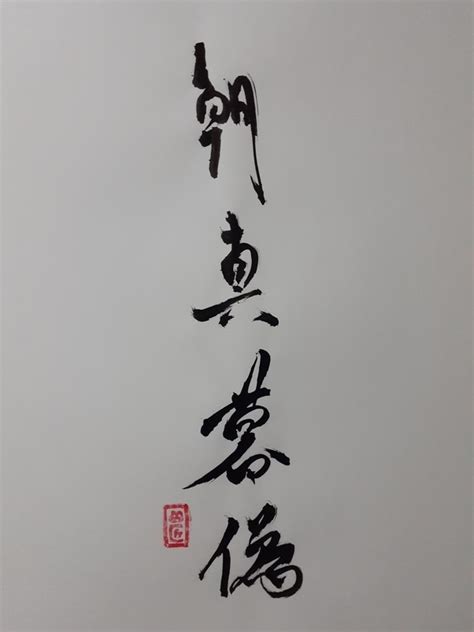 朝真暮偽